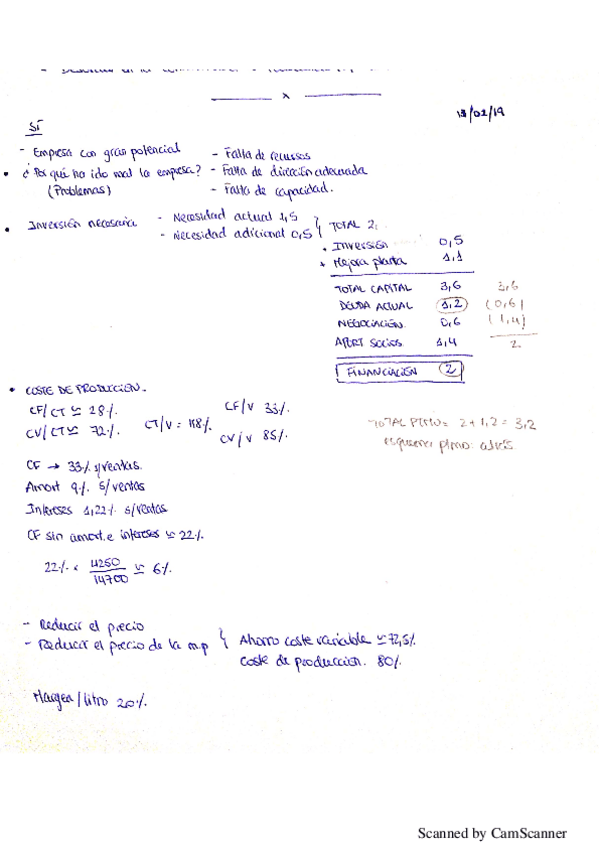 x
13/02/19
SÍ
- Empresa con gran potencial
• ¿Por qué ha ido mal la empresa? (Problemas)
- Falta de recursos
- Falta de dirección adecuada
- Falta de capacidad.
• Inversión necesaria
- Necesidad actual 1,5
- Necesidad adicional 0,5
} TOTAL 2.
+ Inversión 0,5
+ Mejora planta 1,1
TOTAL CAPITAL 3,6 3,6
DEUDA ACTUAL 1,2 (0,6)
NEGOCIACIÓN. 0,6 (1,4)
APORT SOCIOS. 1,4 2.
FINANCIACIÓN 2
• COSTE DE PRODUCCIÓN.
CF/CT ≃ 28%.
CV/CT ≃ 72%.
CT/V = 118%.
CF/V 33%.
CV/V 85%.
TOTAL PTMO = 2 + 1,2 = 3,2
esquema ptmo: atrás
CF → 33% s/ventas.
Amort 9% s/ventas
Intereses 1,22% s/ventas
CF sin amort. e intereses ≃ 22%.
22% × 4250 / 14700 ≃ 6%.
- Reducir el precio
- Reducir el precio de la m.p
} Ahorro coste variable ≃ 72,5%
Coste de producción. 80%.
Margen/litro 20%.
Scanned by CamScanner